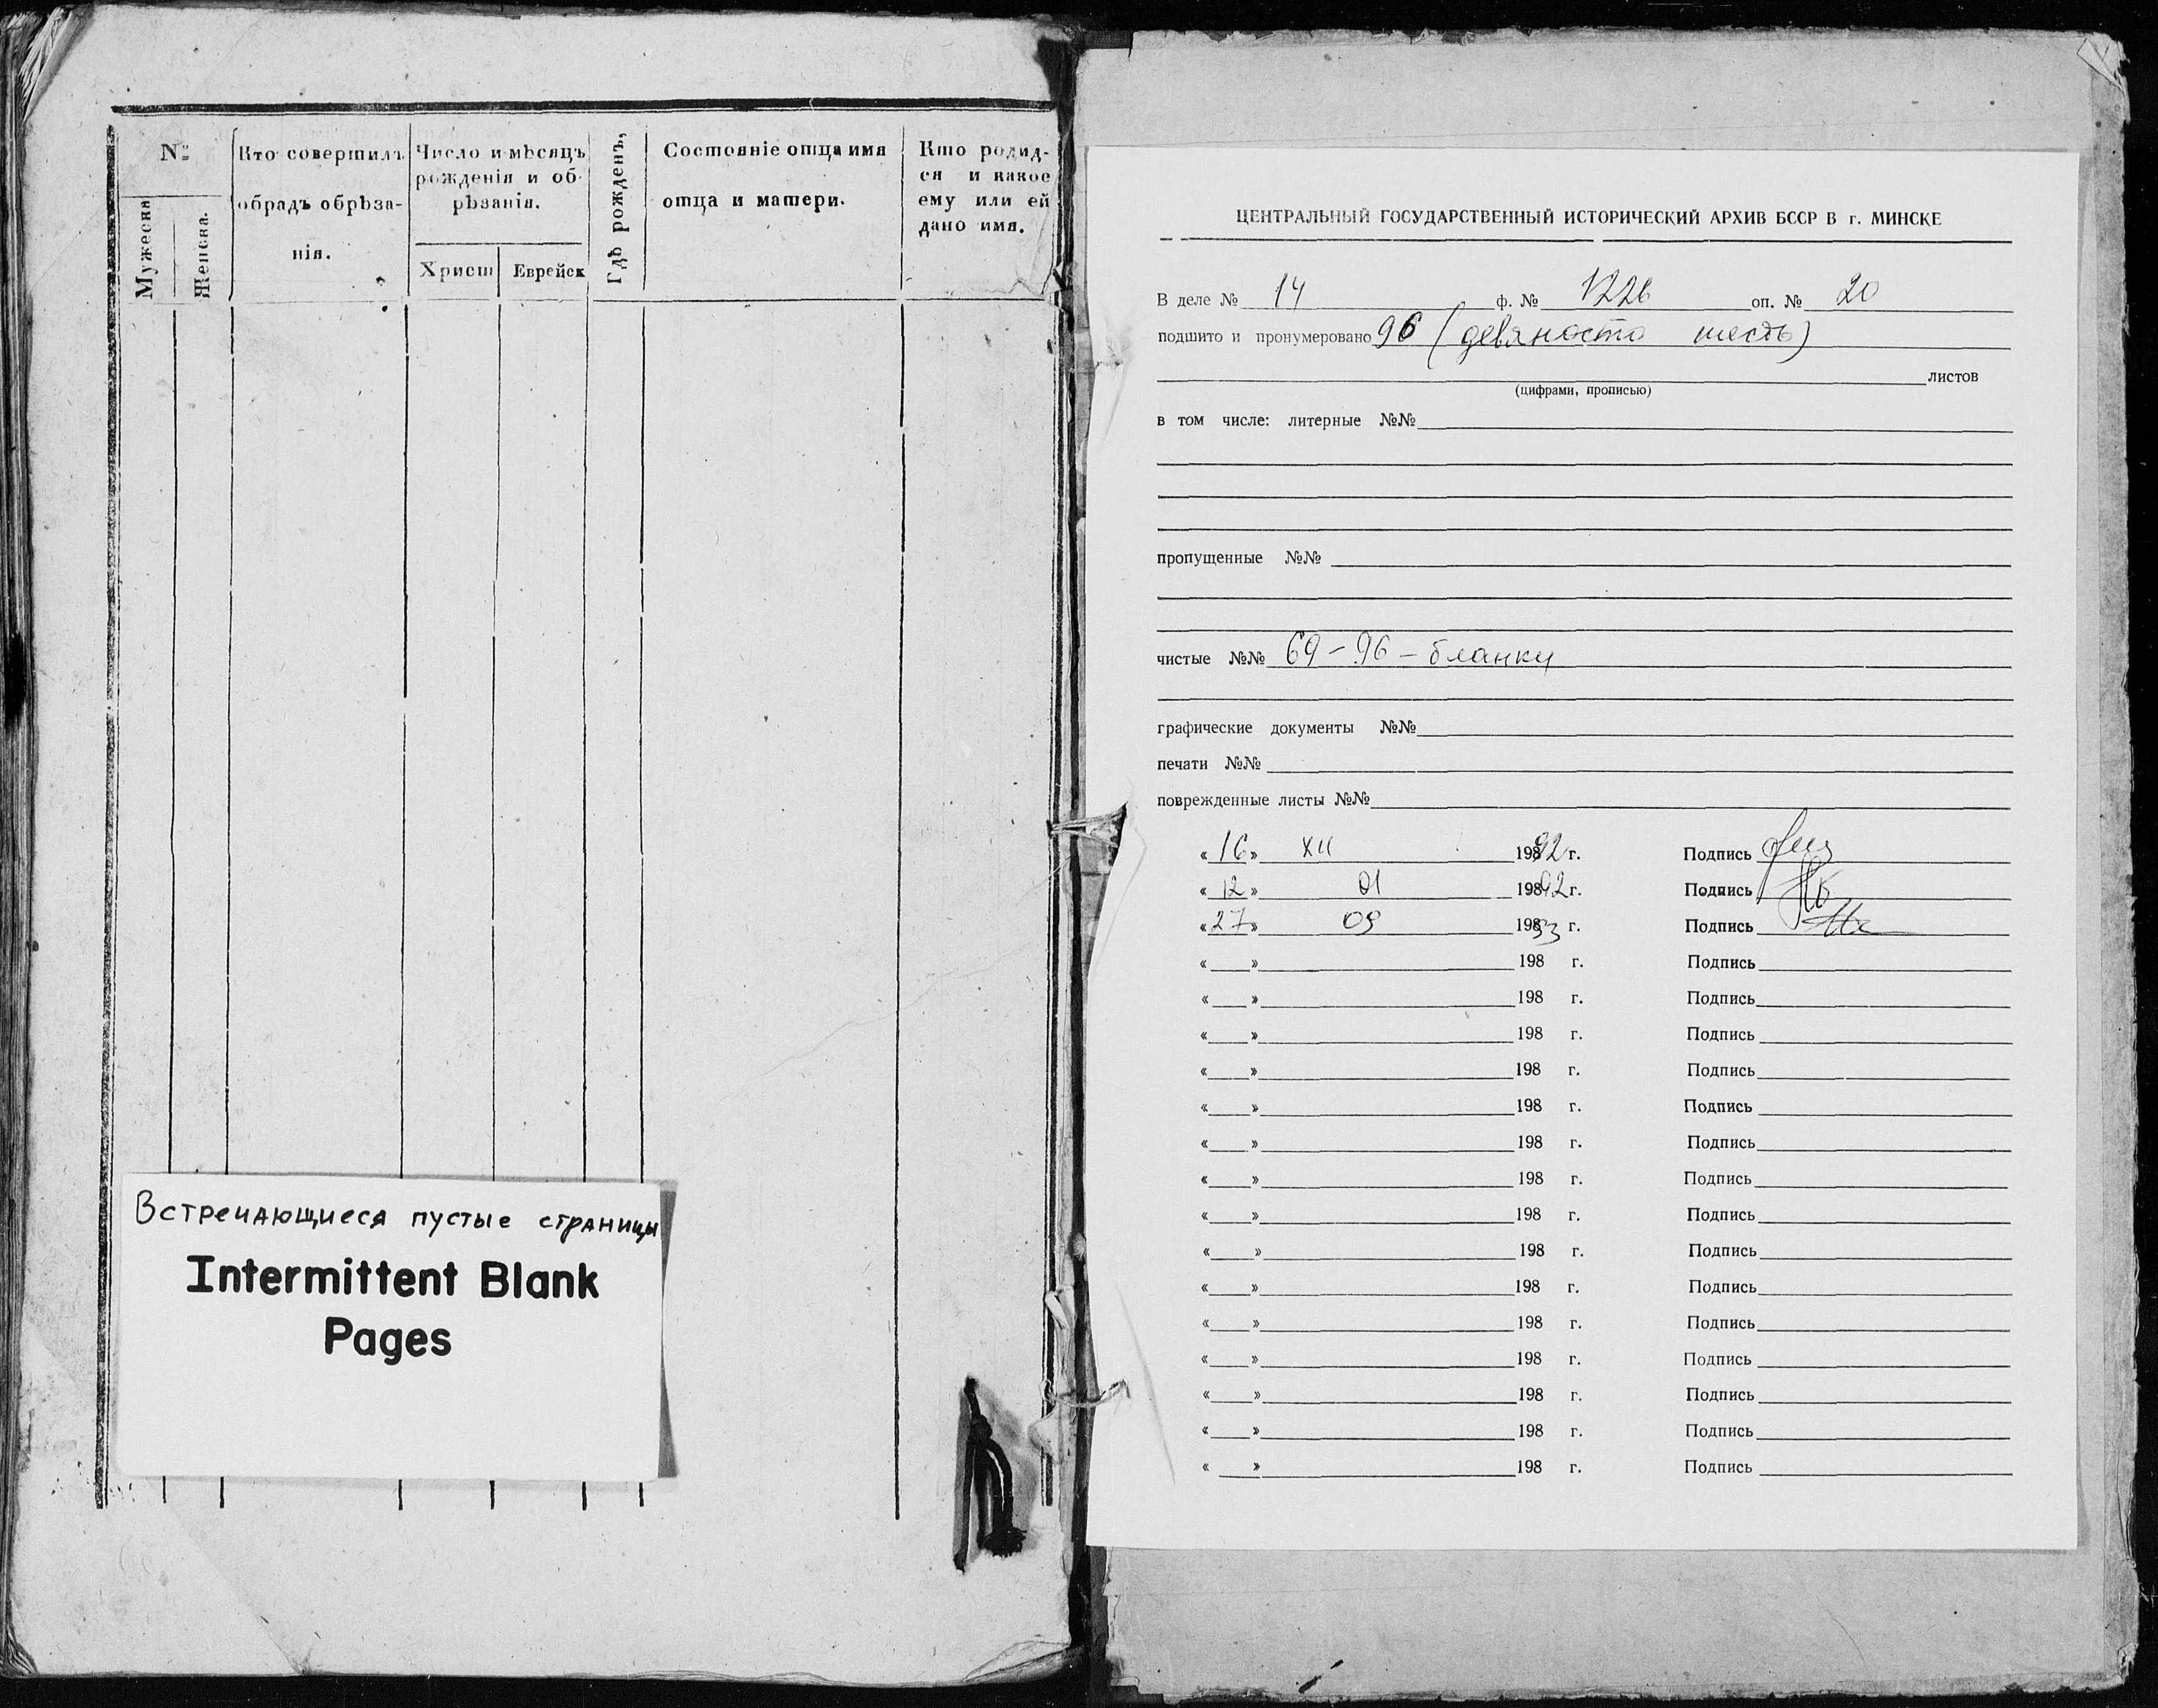 №
Мужеска
Женска.
Кто совершилъ
обрадъ обрѣза-
нія.
Число и мѣсяцъ
рожденія и об-
рѣзанія.
Христ
Еврейск
Гдѣ рожденъ,
Состояніе отца имя
отца и матери.
Кто родид-
ся и какое
ему или ей
дано имя.
Встречающиеся пустые страницы
Intermittent Blank
Pages
ЦЕНТРАЛЬНЫЙ ГОСУДАРСТВЕННЫЙ ИСТОРИЧЕСКИЙ АРХИВ БССР В г. МИНСКЕ
В деле № 14 ф. № 1226 оп. № 20
подшито и пронумеровано 96 (девяносто шесть)
листов
(цифрами, прописью)
в том числе: литерные №№
пропущенные №№
чистые №№ 69-96 - бланки
графические документы №№
печати №№
поврежденные листы №№
« 16 » XII 19892 г. Подпись
« 12 » 01 19892 г. Подпись
« 27 » 09 19893 г. Подпись
« » 198 г. Подпись
« » 198 г. Подпись
« » 198 г. Подпись
« » 198 г. Подпись
« » 198 г. Подпись
« » 198 г. Подпись
« » 198 г. Подпись
« » 198 г. Подпись
« » 198 г. Подпись
« » 198 г. Подпись
« » 198 г. Подпись
« » 198 г. Подпись
« » 198 г. Подпись
« » 198 г. Подпись
« » 198 г. Подпись